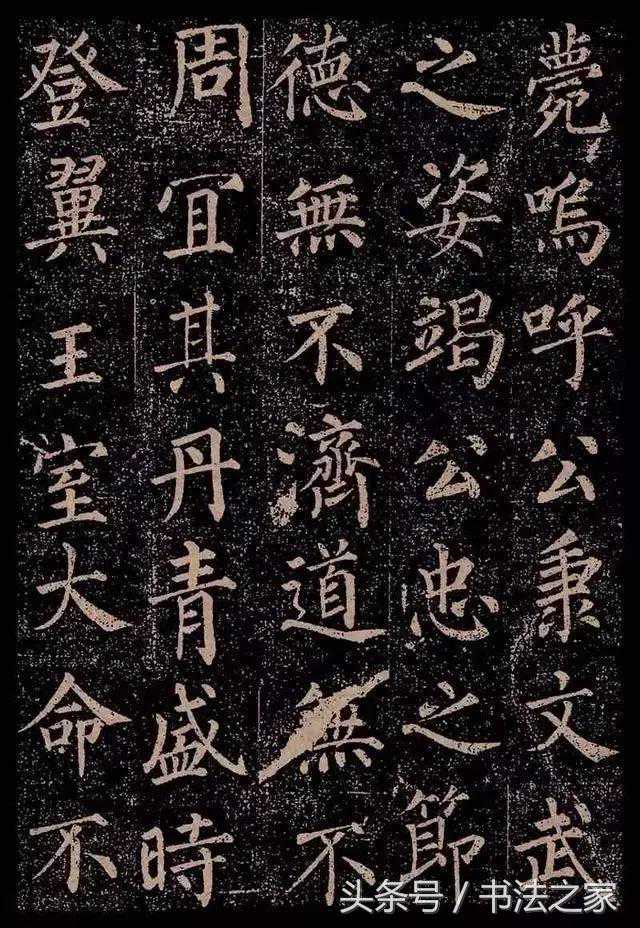 薨嗚呼公秉文武
之姿竭公忠之節
德無不濟道無不
周宜其丹青盛時
登翼王室大命不
头条号 / 书法之家